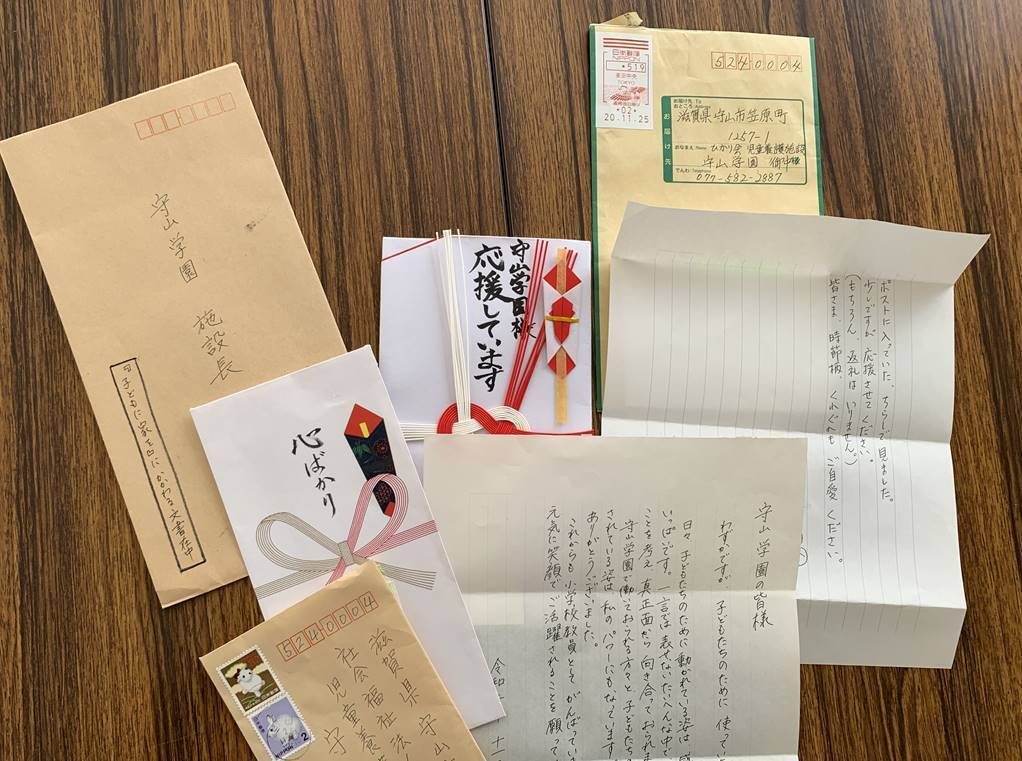 守山学園
施設長
「子どもに家を」にかかわる文書在中
守山学園様
応援しています
心ばかり
日本郵便
NIPPON
519
東京中央
TOKYO
02
20.11.25
5240004
お届け先
お届け先 To
おところ Address
滋賀県守山市笠原町
1257-1
おなまえ Name
ひかり会 児童養護施設
守山学園 御中様
でんわ Telephone
077-582-2887
ポストに入っていた、ちらしで見ました。
少しですが 応援させてください。
(もちろん、返礼はいりません。)
皆さま、時節柄、くれぐれも ご自愛 ください。
守山学園の皆様
わずかですが 子どもたちのために 使って
日々 子どもたちのために 動かれている姿は 感
いっぱいです。一言では 表せないたいへんな中で
ことを考え 真正面から 向き合って おられま
守山学園で 働いておられる方々と 子どもたち
されている姿は 私の パワーにもなっています
ありがとうございました。
これからも 小学校教員として がんばってい
元気に 笑顔で ご活躍されることを 願って
令和二 十一
5240004
NIPPON
2
滋賀県 守山
社会福祉法
児童養
守